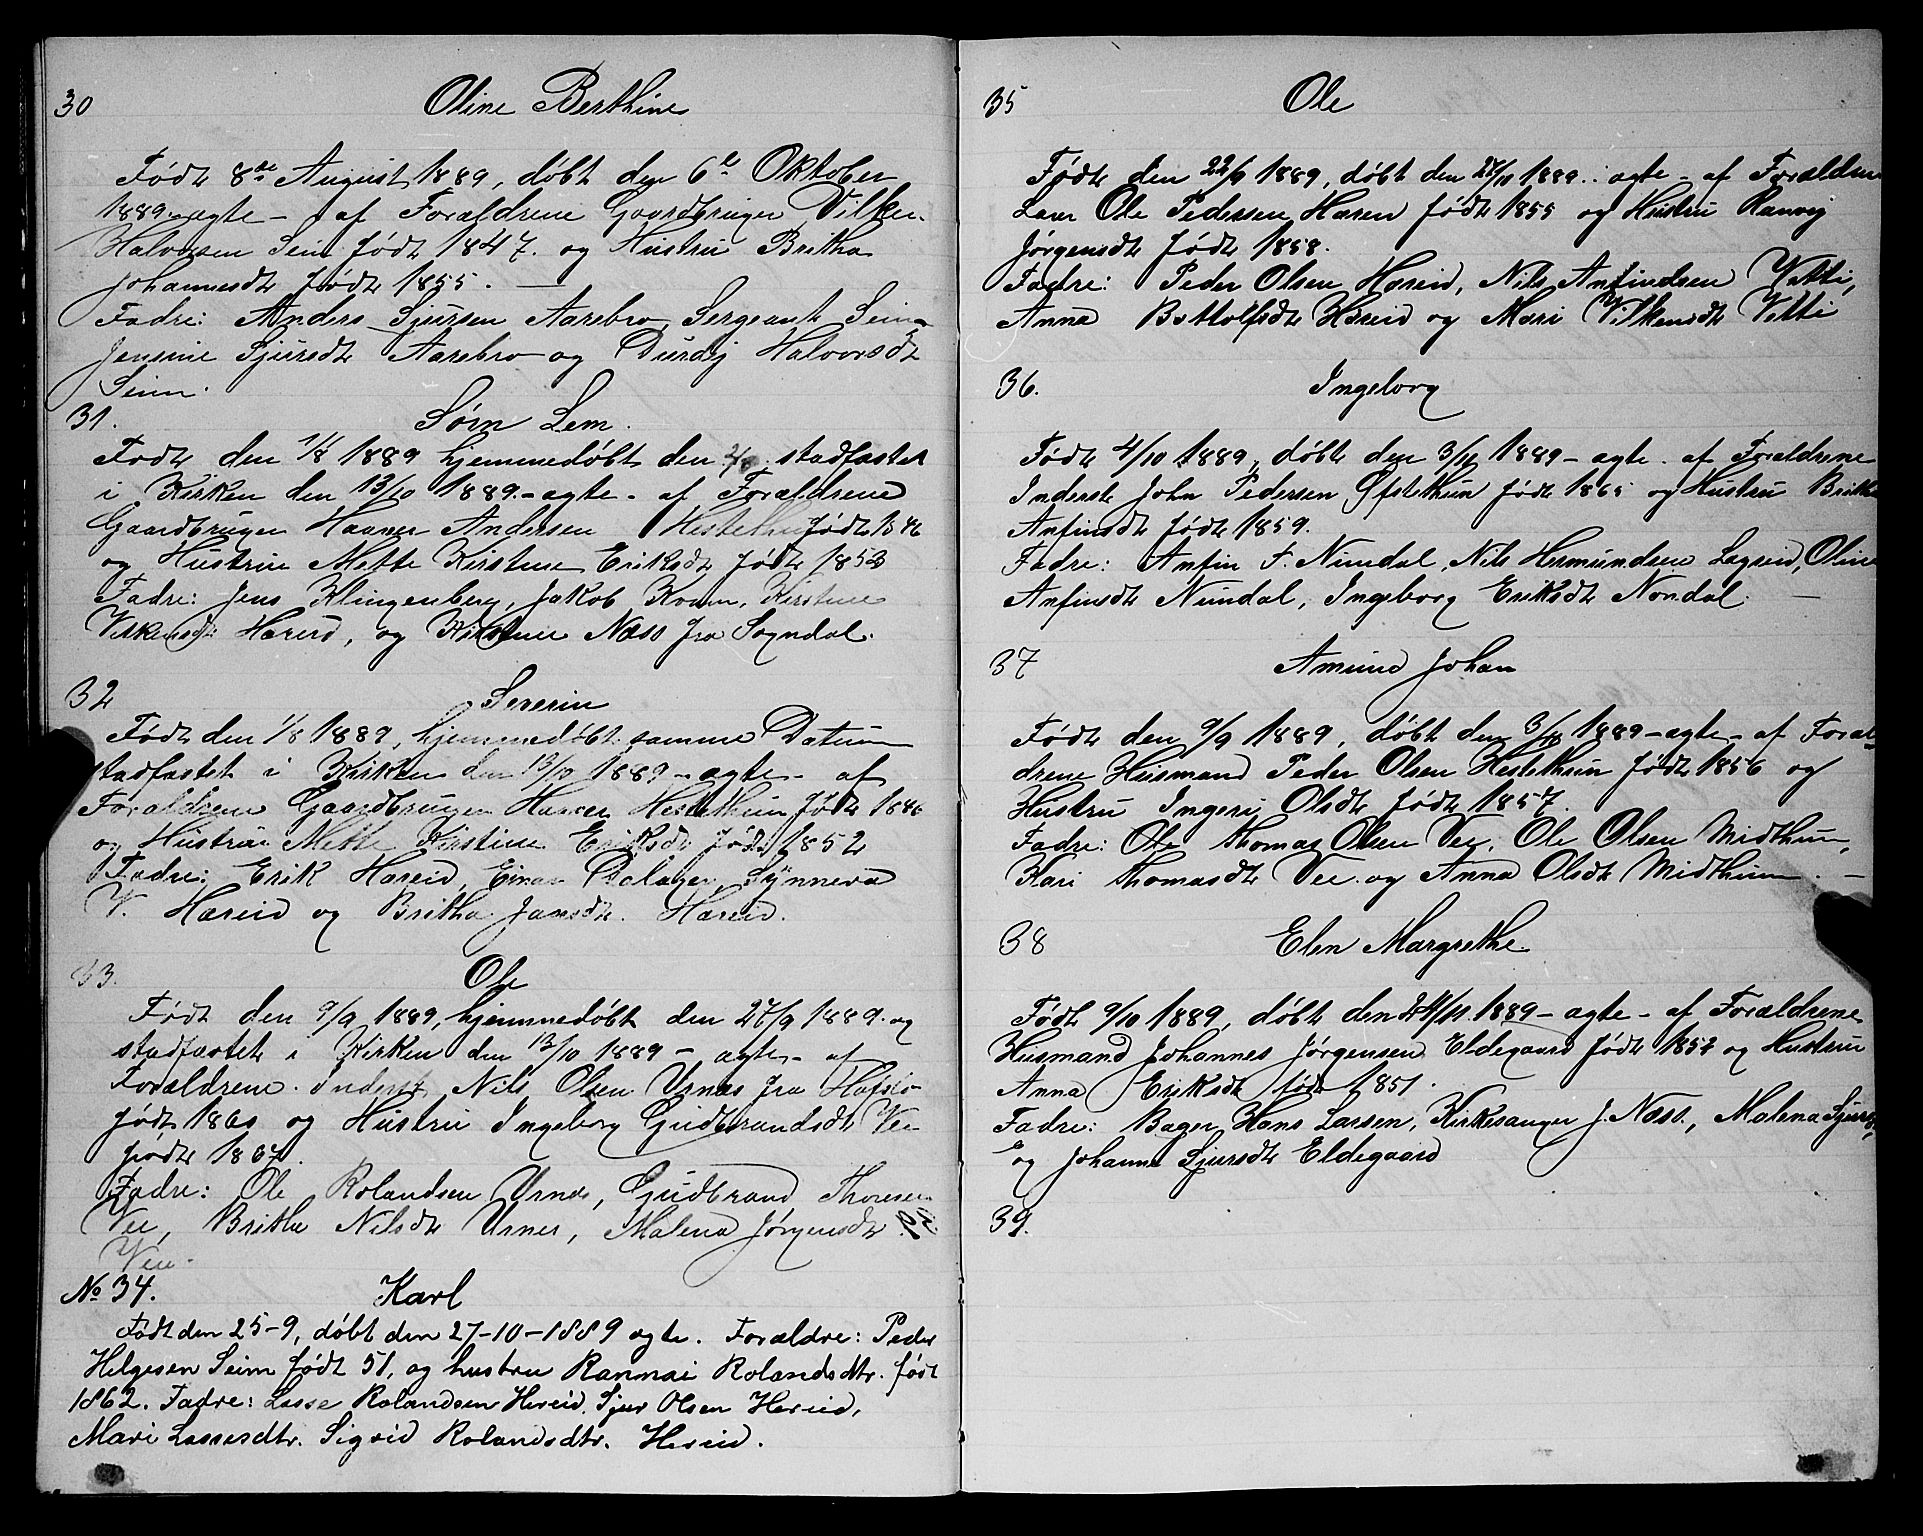 30 Oline Berthine
Født 8de August 1889, døbt den 6te Oktober
1889 – ægte – af Forældrene Gaardbruger Vilken
Halvorsen Seim født 1847. og Hustru Britha
Johannesdt født 1855. —
Fadre: Anders Sjursen Aarebro, Sergeant Seim
Jensine Sjursdt Aarebro og Durdej Halvorsdt
Seim.
31. Sørn Lem.
Født den 1/8 1889 hjemmedøbt den 2/8 stadfæstet
i Kirken den 13/10 1889. – ægte – af Forældrene
Gaardbruger Haaver Andersen Hestethun født 1846
og Hustru Mette Kirstine Eriksdt født 1852
Fadre: Jens Klingenberg, Jakob Kvam, Kirstine
Vilkensdt Hæreid, og Kirstine Næss fra Sogndal.
32 Severin
Født den 1/8 1889, hjemmedøbt samme Datum
stadfæstet i Kirken den 13/10 1889 – ægte – af
Forældrene Gaardbruger Haaver Hestethun født 1846
og Hustru Mette Kirstine Eriksdt født 1852
Fadre: Erik Hæreid, Einar Dalager, Synneva
V. Hæreid og Britha Jansdt. Hæreid.
33. Ole
Født den 9/9 1889, hjemmedøbt den 27/9 1889. og
stadfæstet i Kirken den 13/10 1889 – ægte – af
Forældrene. Inderst Nils Olsen Urnes fra Hafslo
født 1860 og Hustru Ingeborg Gudbrandsdt Vee
født 1867.
Fadre: Ole Rolandsen Urnes, Gudbrand Thoresen
Vee, Brithe Nilsdt Urnes, Malena Jørgensdt.
Vee.
No 34. Karl
Født den 25-9, døbt den 27-10-1889 ægte. Forældre: Peder
Helgesen Seim født 51, og hustru Ranmai Rolandsdtr. født
1862. Fadre: Lasse Rolandsen Hereid, Sjur Olsen Hereid,
Mari Lassesdtr. Sigrid Rolandsdtr. Hereid.
35 Ole
Født den 22/9 1889, døbt den 27/10 1889. ægte – af Forældrene
Ole Pedersen Hæren født 1855 og Hustru Ranvej
Jørgensdt født 1858.
Fadre: Peder Olsen Hæreid, Nils Anfindsen Vetti,
Anna Bottolfsdt Hæreid og Mari Vilkensdt Vetti
36. Ingeborg
Født 4/10 1889, døbt den 3/11 1889 – ægte – af Forældrene
Inderst John Pedersen Øfstethun født 1865 og Hustru Britha
Anfinsdt født 1859.
Fadre: Anfin F. Nundal, Nils Hermundsen Lægreid, Oline
Anfinsdt Nundal, Ingeborg Eriksdt Nondal. —
37 Amund Johan
Født den 9/9 1889, døbt den 3/11 1889 – ægte – af Foræl-
drene Husmand Peder Olsen Hestethun født 1856 og
Hustru Ingeri Olsdt født 1857.
Fadre: Ole Thomas Olsen Vee, Ole Olsen Midthun,
Kari Thomasdt Vee. og Anna Olsdt Midthun. —
38 Elen Margrethe.
Født 9/10 1889, døbt den 24/11 1889 – ægte – af Forældrene
Husmand Johannes Jørgensen Eldegaard født 1852 og Hustru
Anna Eriksdt født 1851.
Fadre: Bager Hans Larsen, Kirkesanger J. Næss., Malena Sjursdt,
og Johanne Sjursdt Eldegaard
39.